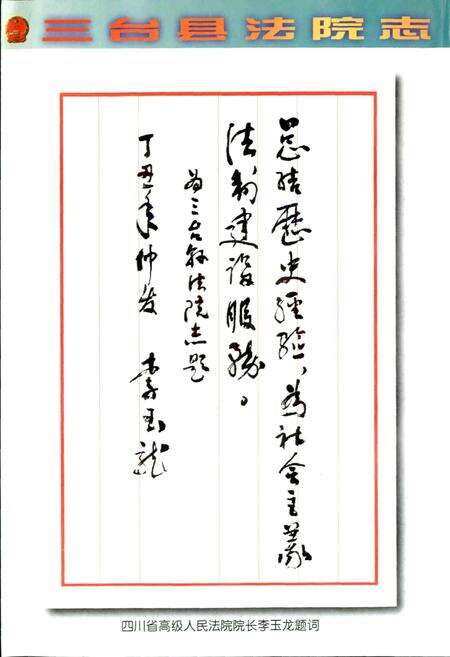 三台县法院志
总结歷史經驗，為社会主義
法制建设服務。
为三台县法院志题
丁丑年仲发 李玉龍
四川省高级人民法院院长李玉龙题词